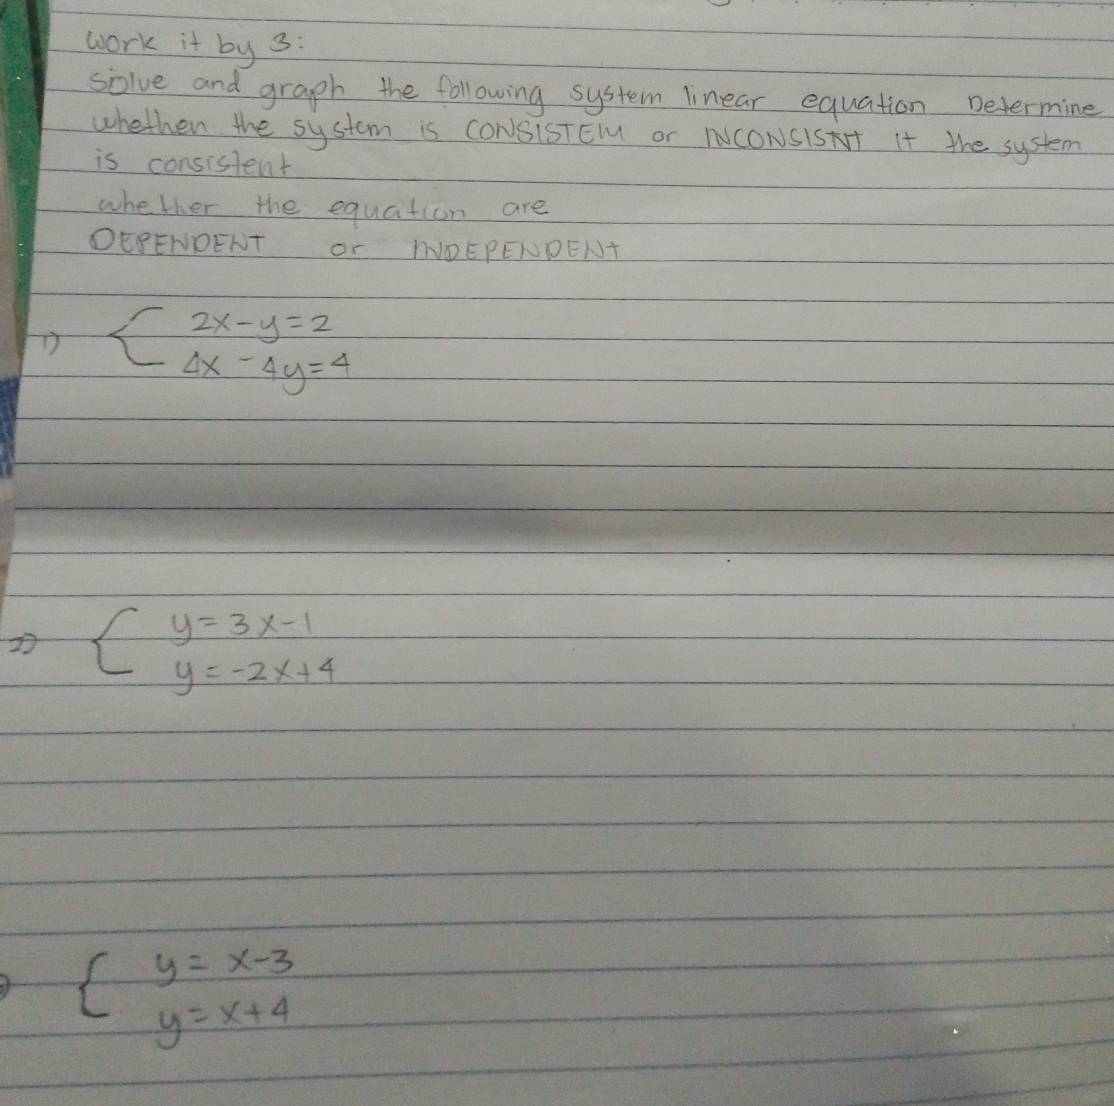 work it by 3:
solve and graph the following system linear equation Determine
whethen the system is CONSISTEM or INCONSISTNT It the system
is consistent
whether the equation are
DEPENDENT or INDEPENDENT
1) { 2x-y=2
4x-4y=4
2) { y=3x-1
y=-2x+4
{ y=x-3
y=x+4